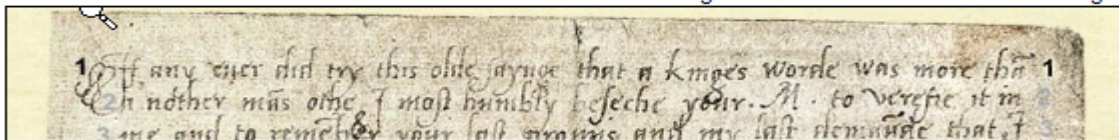 1 If any ever did try this olde sayinge that a kinges worde was more thā 1
2 a nother mās othe I most humbly beseche your. M. to verefie it in 2
3 me and to remēber your last promis and my last demaūde that I